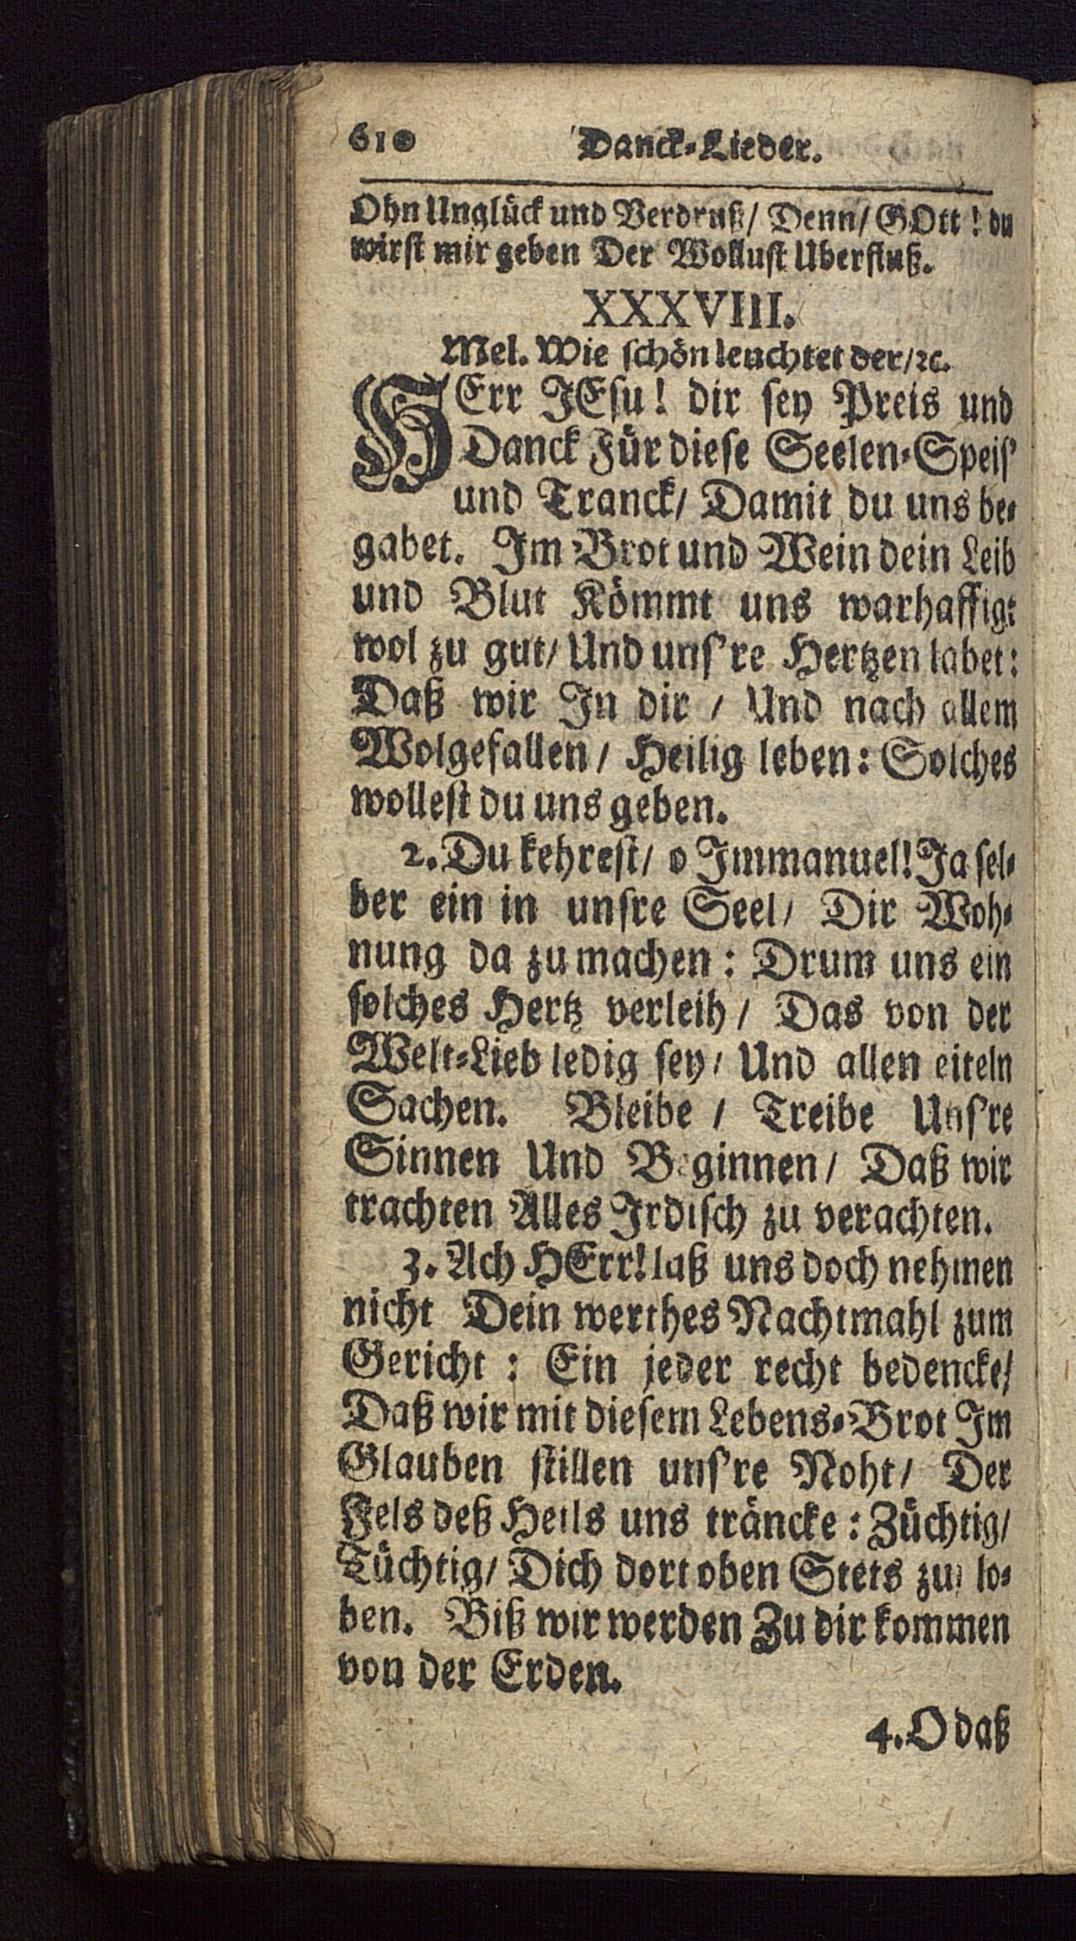 610 Danck-Lieder.
Ohn Unglück und Verdruß/ Denn/ GOtt! du
wirst mir geben Der Wollust Uberfluß.
XXXVIII.
Mel. Wie schön leuchtet der/ꝛc.
HErr JEsu! dir sey Preis und
Danck Für diese Seelen-Speis'
und Tranck/ Damit du uns be-
gabet. Im Brot und Wein dein Leib
und Blut Kömmt uns warhafftigt
wol zu gut/ Und uns're Hertzen labet:
Daß wir In dir / Und nach allem
Wolgefallen / Heilig leben: Solches
wollest du uns geben.
2. Du kehrest/ o Immanuel! Ja sel-
ber ein in unsre Seel/ Dir Woh-
nung da zu machen: Drum uns ein
solches Hertz verleih / Das von der
Welt-Lieb ledig sey/ Und allen eiteln
Sachen. Bleibe / Treibe Uns're
Sinnen Und Beginnen/ Daß wir
trachten Alles Irdisch zu verachten.
3. Ach HErr! laß uns doch nehmen
nicht Dein werthes Nachtmahl zum
Gericht: Ein jeder recht bedencke/
Daß wir mit diesem Lebens-Brot Im
Glauben stillen uns're Noht/ Der
Fels deß Heils uns träncke: Züchtig/
Tüchtig/ Dich dort oben Stets zu lo-
ben. Biß wir werden Zu dir kommen
von der Erden.
4. O daß